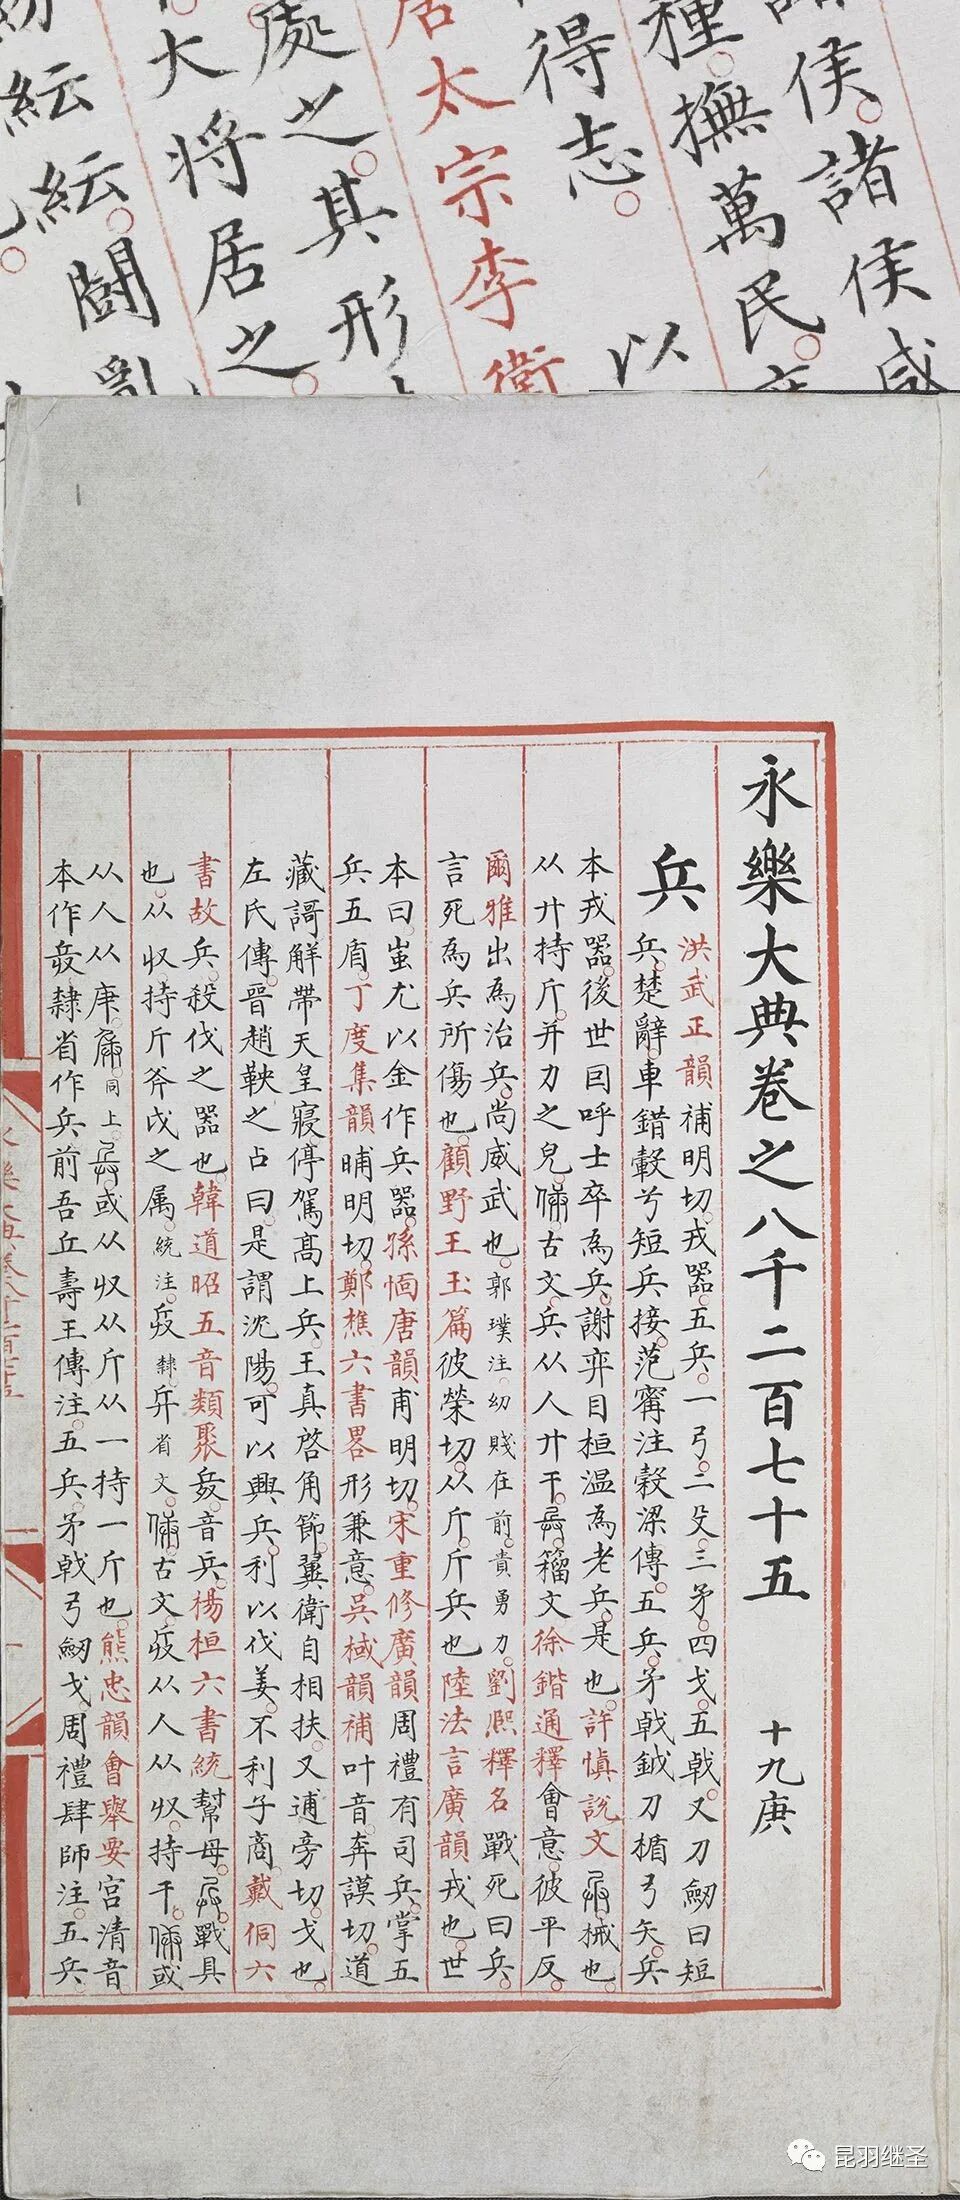 諸侯。諸侯咸
種。撫萬民。
得志。以
唐太宗李衛
處之。其形
大將居之。
紜紜。鬪亂
永樂大典卷之八千二百七十五 十九庚
兵
洪武正韻補明切。戎器。五兵。一弓。二殳。三矛。四戈。五戟。又刀劒曰短
兵。楚辭。車錯轂兮短兵接。范甯注穀梁傳。五兵。矛戟鉞刀楯弓矢。兵
本戎器。後世因呼士卒為兵。謝弈目桓溫為老兵。是也。許慎說文 械也。
从廾持斤。并力之皃。古文。兵从人廾干。籀文徐鍇通釋會意。彼平反。
爾雅出為治兵。尚威武也。郭璞注。幼賤在前。貴勇力。劉熈釋名戰死曰兵。
言死為兵所傷也。顧野王玉篇彼榮切。从斤。斤兵也陸法言廣韻戎也。世
本曰。蚩尤以金作兵器。孫愐唐韻甫明切。宋重修廣韻周禮有司兵。掌五
兵五盾。丁度集韻晡明切。鄭樵六書畧形兼意。吳棫韻補叶音。奔謨切。道
藏謌解帶天皇寢停駕高上兵。王真啓角節。翼衛自相扶。又逋旁切。戈也。
左氏傳。晉趙鞅之占曰。是謂沈陽。可以興兵。利以伐姜。不利子商。戴侗六
書故兵。殺伐之器也。韓道昭五音類聚 音兵。楊桓六書統幫母。戰具
也。从収。持斤斧戉之属。統注。 隸 省文。古文 从人从収。持干。或
从人从庚。同上。或从収从斤从一持一斤也。熊忠韻會舉要宮清音
本作 隸省作兵前吾丘壽王傳注。五兵。矛戟弓劒戈。周禮肆師注。五兵
昆羽继圣